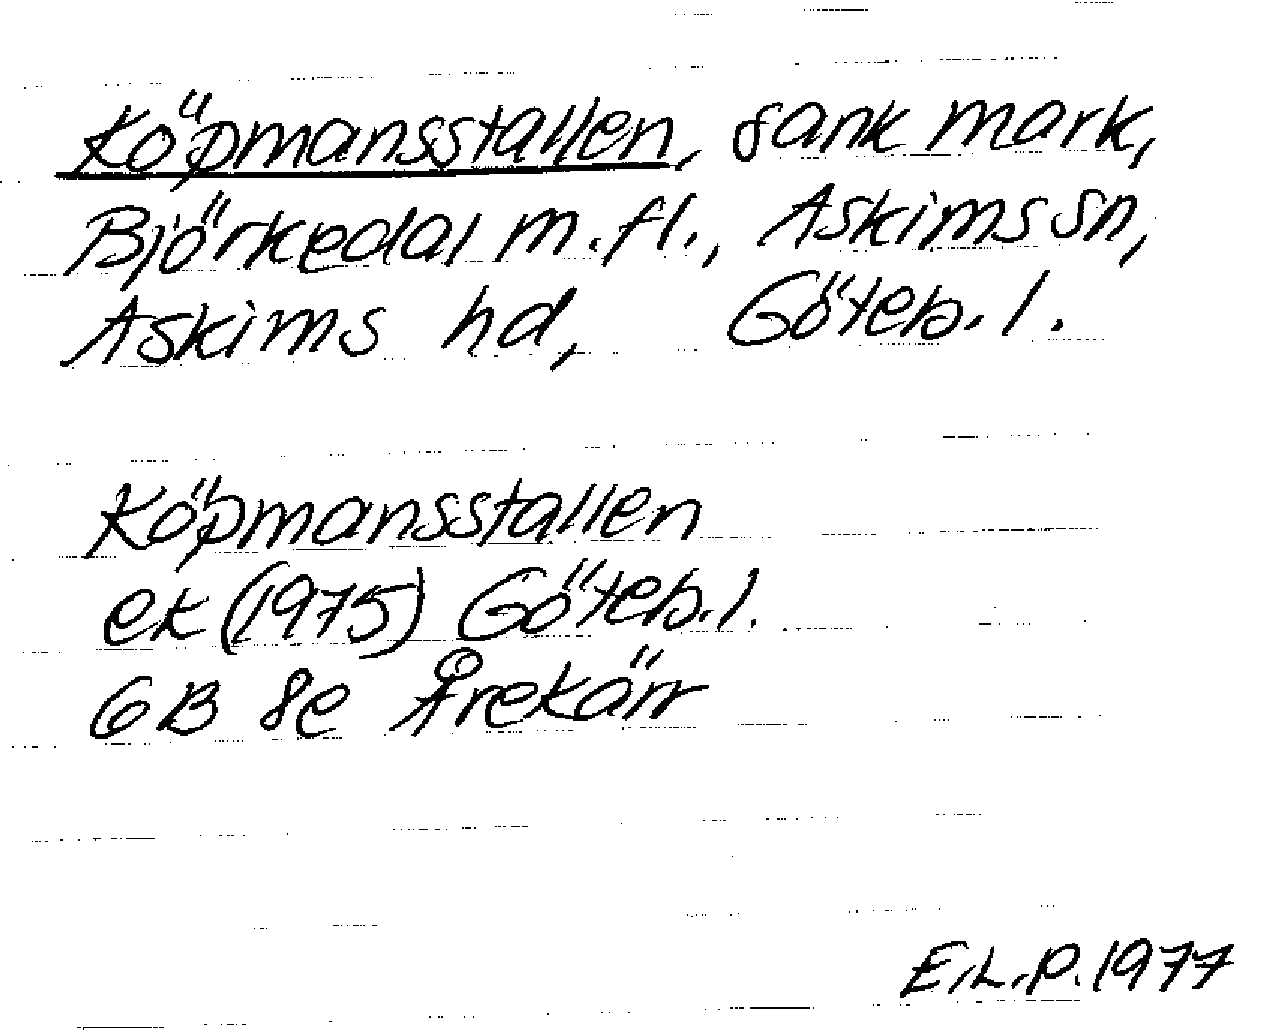 Köpmansstallen, sank mark,
Björkedal m.fl., Askims sn,
Askims hd, Göteb. l.
Köpmansstallen
ek (1975) Göteb. l.
6B 8e Årekärr
E.L.P. 1977